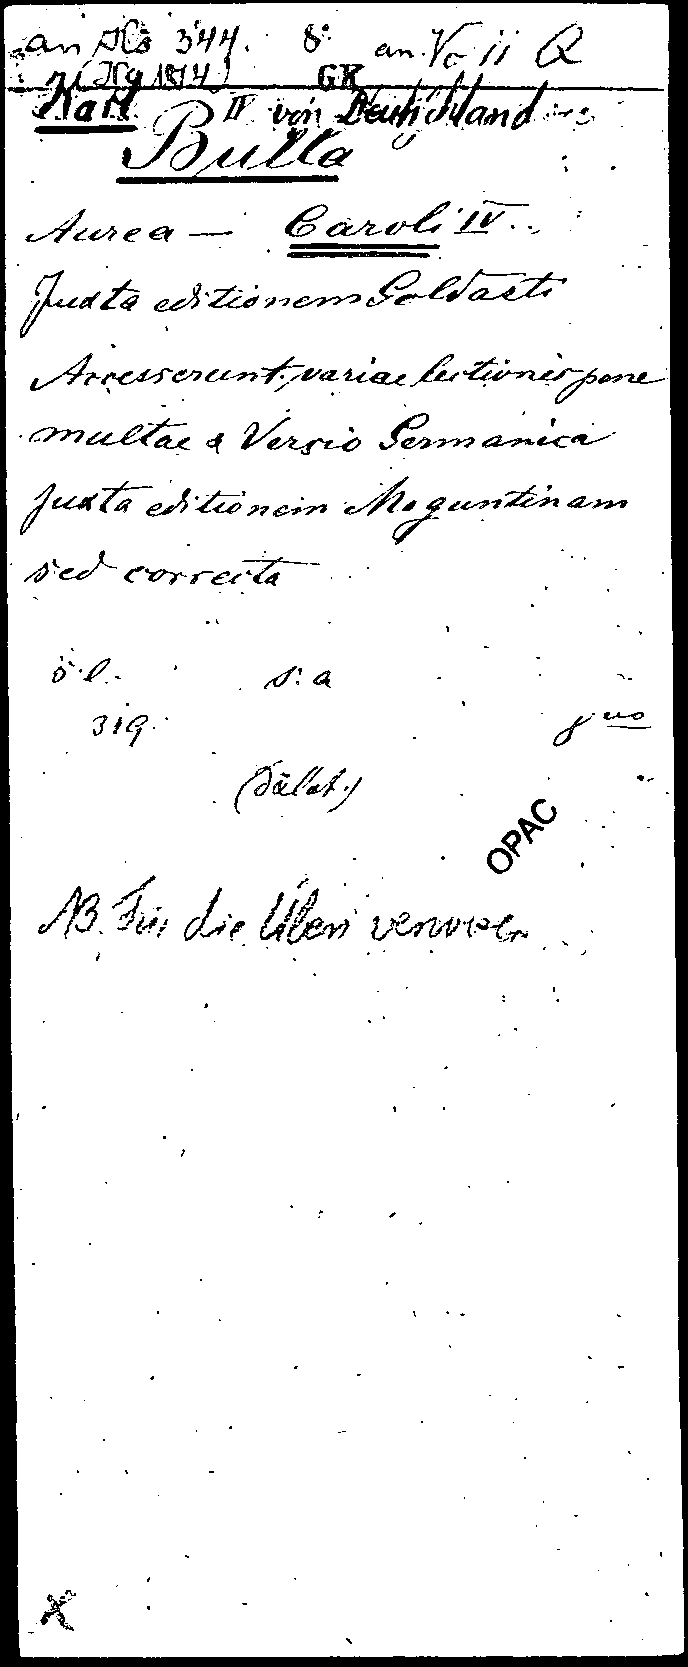 an 344. 8° an Vc 11 Q
(Xg 1814) GK
Karl IV von Deutschland
Bulla
Aurea — Caroli IV..
Juxta editionem Goldasti
Accesserunt variae lectiones pene
multae & Versio Germanica
juxta editionem Moguntinam
sed correcta
s. l. s. a
319. 8vo
OPAC
NB. Für die
X